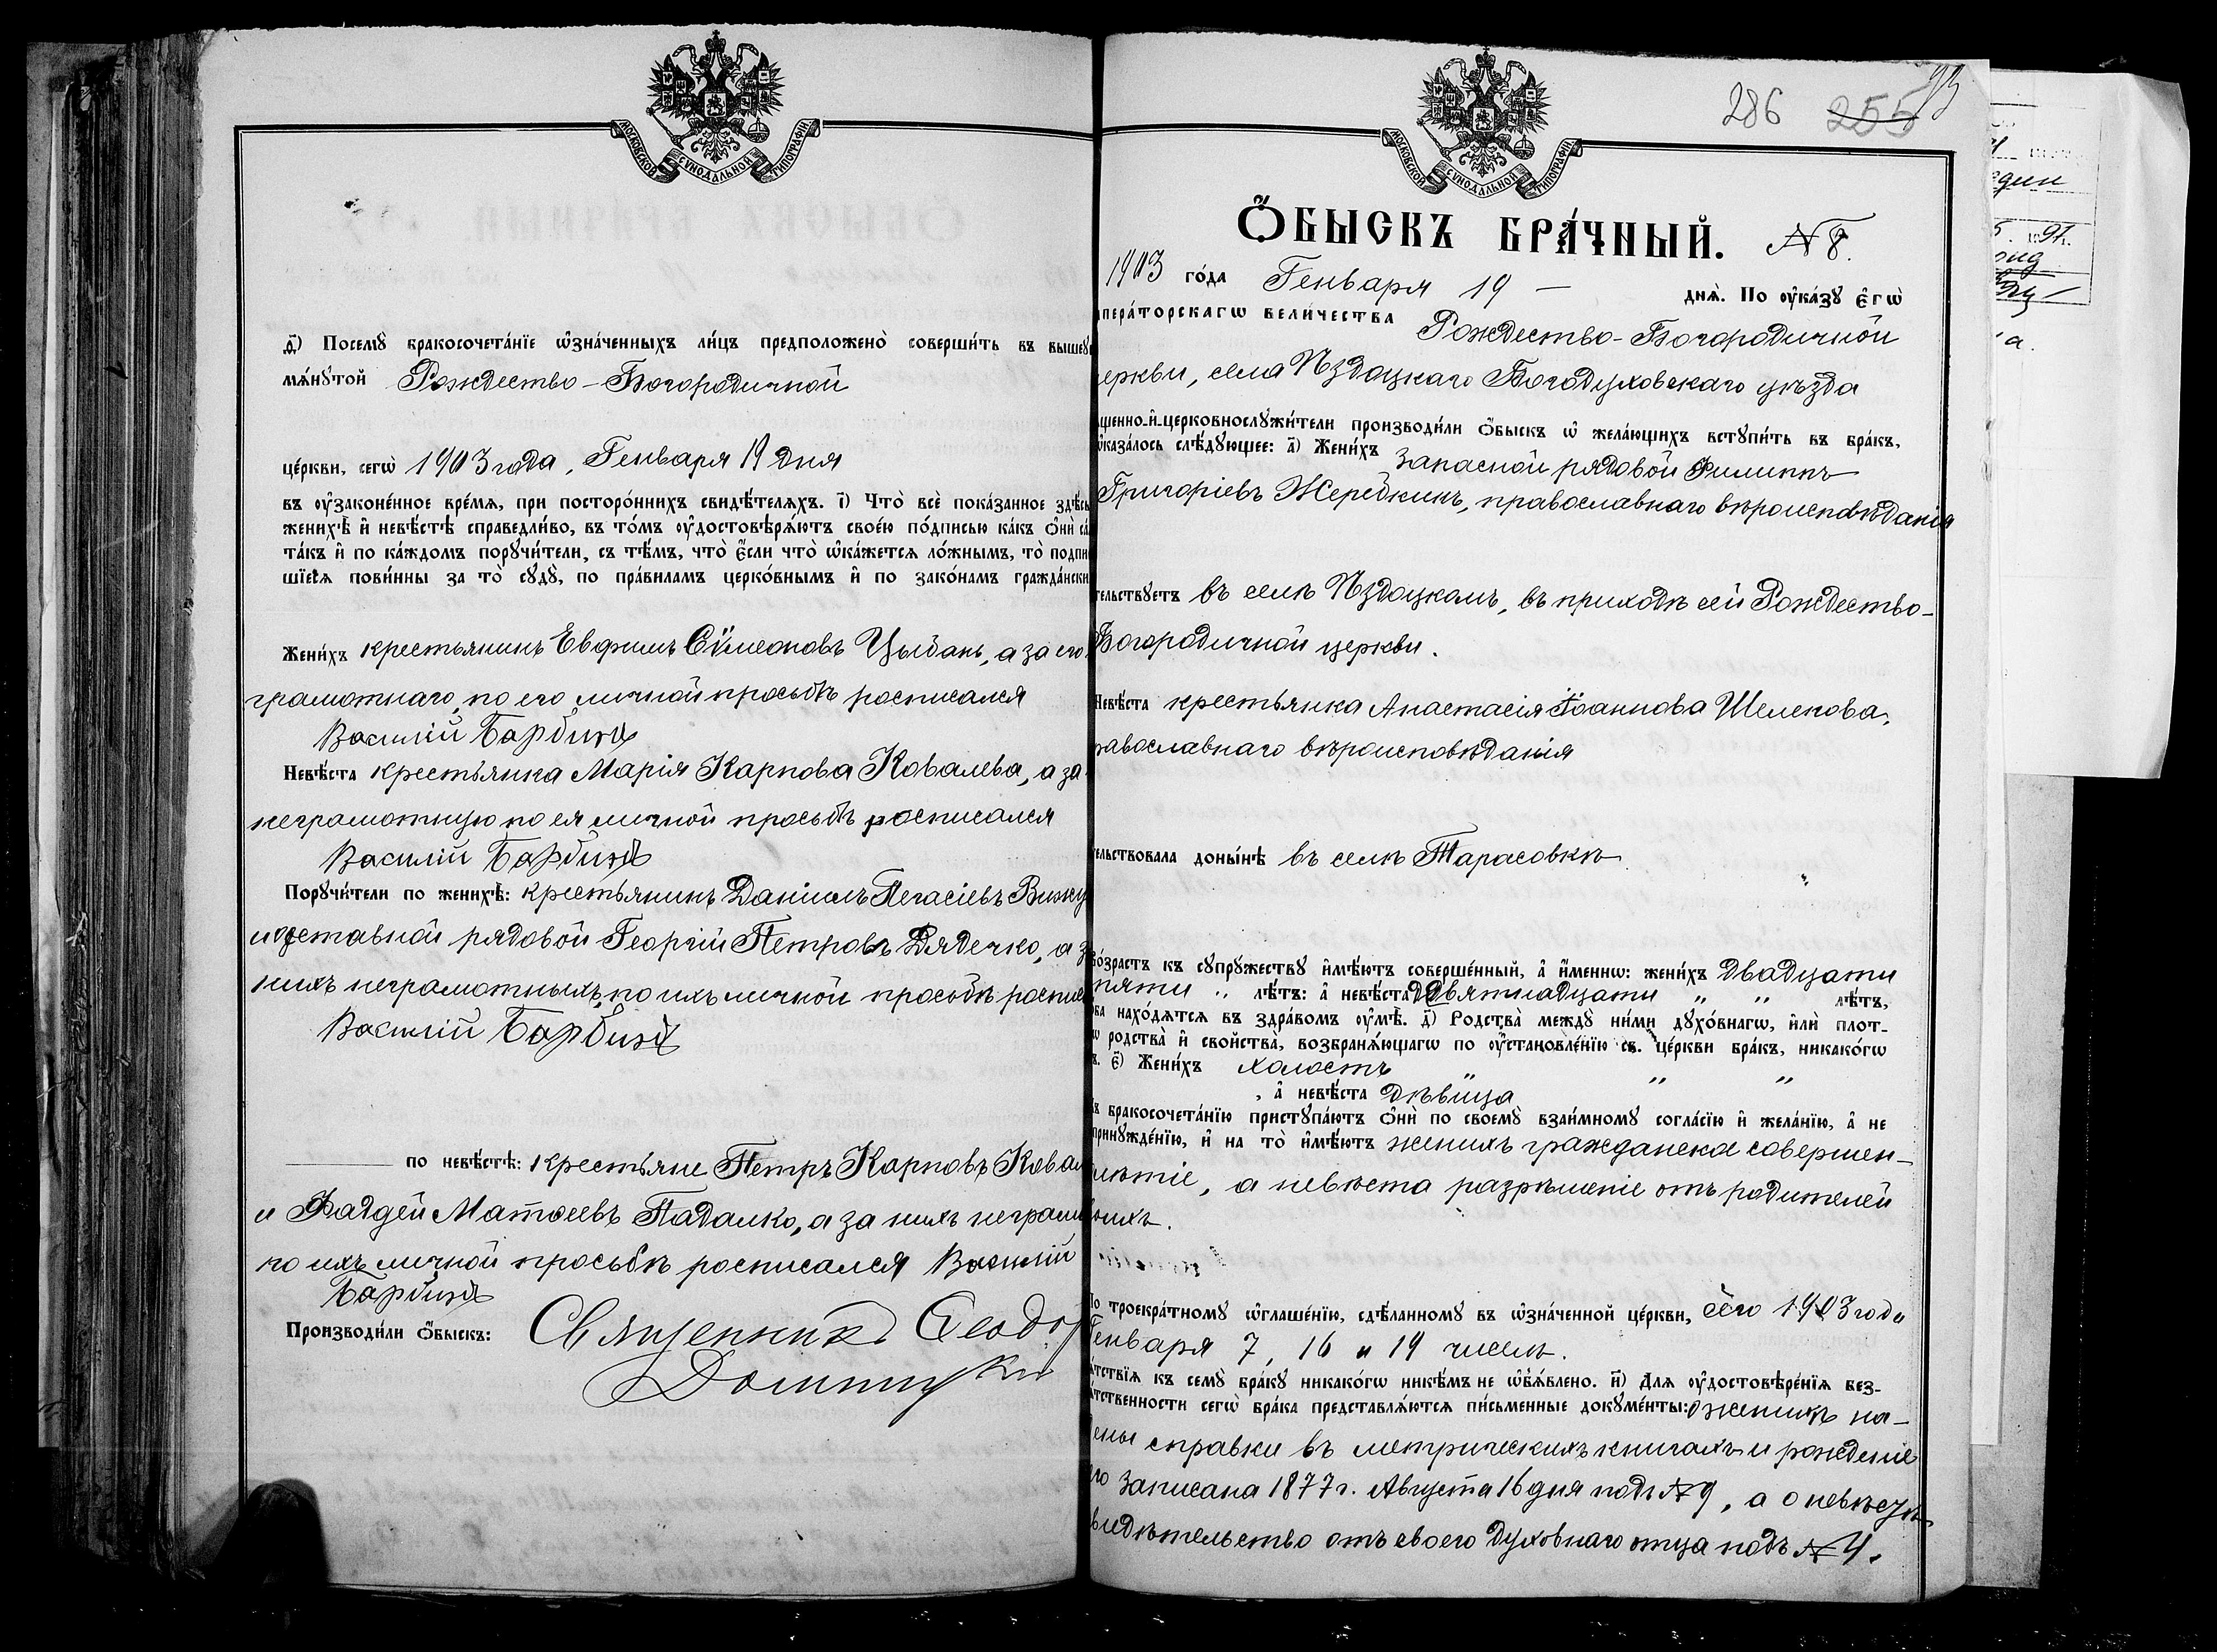 МОСКОВСКОЙ СѴНОДАЛЬНОЙ ТИПОГРАФІИ
д҃) Посемꙋ̀ бракосочета́нїе ѡ҆зна́ченныхъ ли́цъ предположено̀ соверши́ть въ вышеꙋ
мѧ́нꙋтой Рождество-Богородичной
це́ркви, сегѡ̀ 1903 года, Генваря 19 дня
въ ᲂу҆законе́нное вре́мѧ, при посторо́ннихъ свидѣ́телѧхъ. і҃) Что̀ всѐ пока́занное здѣсь
женихѣ̀ и҆ невѣ́стѣ справедли́во, въ то́мъ ᲂу҆достовѣрѧ́ютъ свое́ю по́дписью ка́къ ѻ҆нѝ са
та́къ и҆ по ка́ждомъ порꙋчи́тели, съ тѣ́мъ, что̀ є҆́сли что̀ ѡ҆ка́жетсѧ ло́жнымъ, то̀ подпи
шїесѧ пови́нны за то̀ сꙋдꙋ̀, по пра́виламъ церко́внымъ и҆ по зако́намъ гражда́нски
Жени́хъ крестьянинъ Евфимъ Сѵмеоновъ Цыбань, а за его
грамотнаго, по его личной просьбѣ росписался
Василій
Невѣ́ста крестьянка Марія Карпова Ковалева, а за
неграмотную по ея личной просьбѣ росписался
Василій
Порꙋчи́тели по женихѣ̀: крестьянинъ Даніилъ Пегасіевъ
и отставной рядовой Георгій Петровъ Дядечко, а з
нихъ неграмотныхъ, по ихъ личной просьбѣ роспис
Василій
по невѣ́стѣ: крестьяне Петръ Карповъ Ковал
и Фаддей Матѳеевъ Падалко, а за нихъ неграм
по ихъ личной просьбѣ росписался Василій
Производи́ли ѻ҆́быскъ: Священникъ Ѳеодор
286 255 93
МОСКОВСКОЙ СѴНОДАЛЬНОЙ ТИПОГРАФІИ
Ѻ҆БЫСКЪ БРА́ЧНЫЙ. № 8.
1903 го́да Генваря 19 – днѧ̀. По ᲂу҆ка́зꙋ є҆гѡ̀
ператорскагѡ вели́чества Рождество-Богородичной
еркви, села Пздоцкаго Богодуховскаго уѣзда
щенно-и҆-церковнослꙋжи́тели производи́ли ѻ҆́быскъ ѡ҆ жела́ющихъ встꙋпи́ть въ бра́къ,
ѡ҆каза́лось слѣ́дꙋющее: а҃) Жени́хъ запасной рядовой Филиппъ
Григоріевъ Жеребкинъ, православнаго вѣроисповѣданія
тельствꙋетъ въ селѣ Пздоцкомъ, въ приходѣ сей Рождество-
Богородичной церкви.
Невѣ́ста крестьянка Анастасія Іоаннова Шелехова,
равославнаго вѣроисповѣданія
ельствовала доны́нѣ въ селѣ Тарасовкѣ
во́зрастъ къ сꙋпрꙋжествꙋ и҆мѣ́ютъ соверше́нный, а҆ и҆́меннѡ: жени́хъ двадцати
пяти „ лѣ́тъ: а҆ невѣ́ста девятнадцати „ „ лѣ́тъ,
ва нахо́дѧтсѧ въ здра́вомъ ᲂу҆мѣ̀. д҃) Родства̀ междꙋ̀ ни́ми дꙋхо́внагѡ, и҆лѝ плот-
ѡ родства̀ и҆ сво́йства, возбранѧ́ющагѡ по ᲂу҆становле́нїю св. це́ркви бра́къ, никако́гѡ
ъ. є҃) Жени́хъ холостъ „ „
, а҆ невѣ́ста дѣвица
ъ бракосочета́нїю пристꙋпа́ютъ ѻ҆нѝ по своемꙋ̀ взаи́мномꙋ согла́сїю и҆ жела́нїю, а҆ не
принꙋжде́нїю, и҆ на то̀ и҆мѣ́ютъ женихъ гражданское совершен-
лѣтіе, а невѣста разрѣшеніе отъ родителей
оихъ.
По троекра́тномꙋ ѡ҆глаше́нїю, сдѣ́ланномꙋ въ ѡ҆зна́ченной це́ркви, сего 1903 года
Генваря 7, 16 и 19 чиселъ.
ѧ́тствїѧ къ семꙋ̀ бра́кꙋ никако́гѡ никѣ́мъ не ѡ҆б̾ѧ́влено. и҃) Длѧ ᲂу҆достовѣре́нїѧ без-
ѧ́тственности сегѡ̀ бра́ка представлѧ́ютсѧ пи́сьменные докꙋме́нты: о женихѣ на-
ены справки въ метрическихъ книгахъ и рожденіе
го записана 1877 г. Августа 16 дня подъ № 9, а о невѣстѣ
видѣтельство отъ своего духовнаго отца подъ № 4.